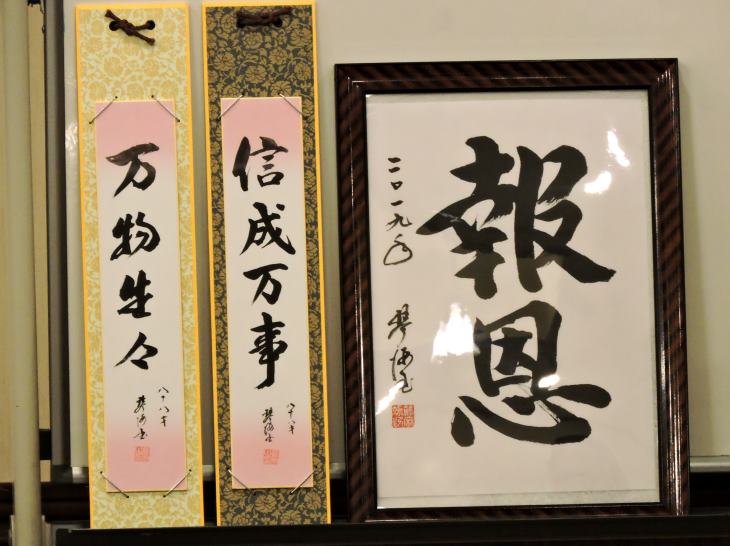 万物生々
八十八才
琴海書
信成万事
八十八才
琴海書
報恩
二〇一九年
琴海書